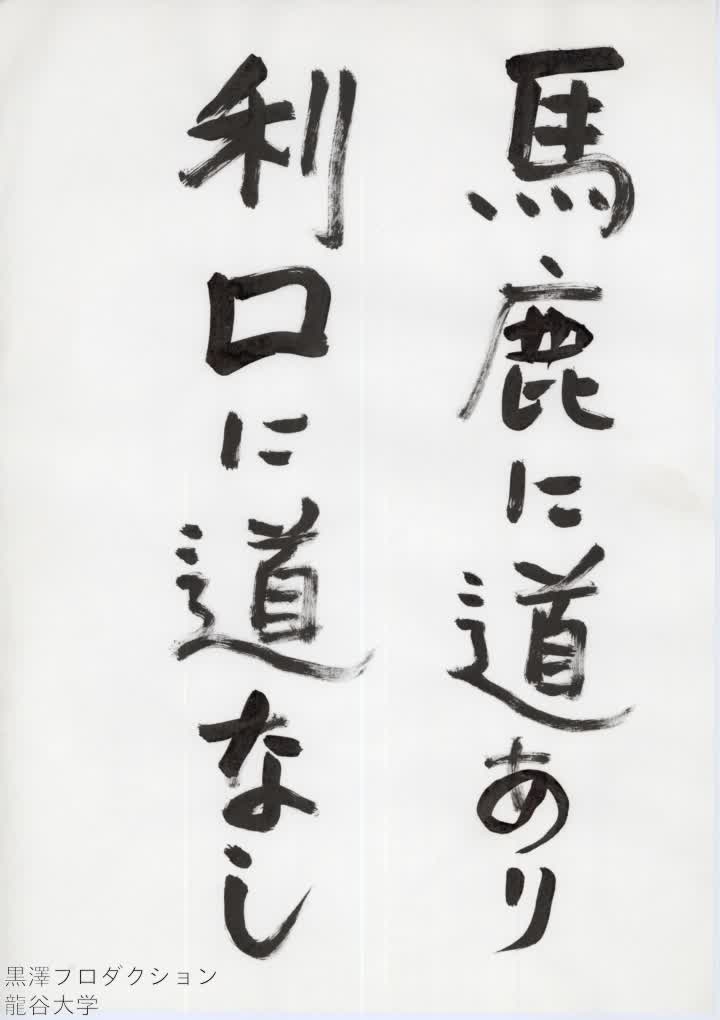 馬鹿に道あり
利口に道なし
黒澤プロダクション
龍谷大学